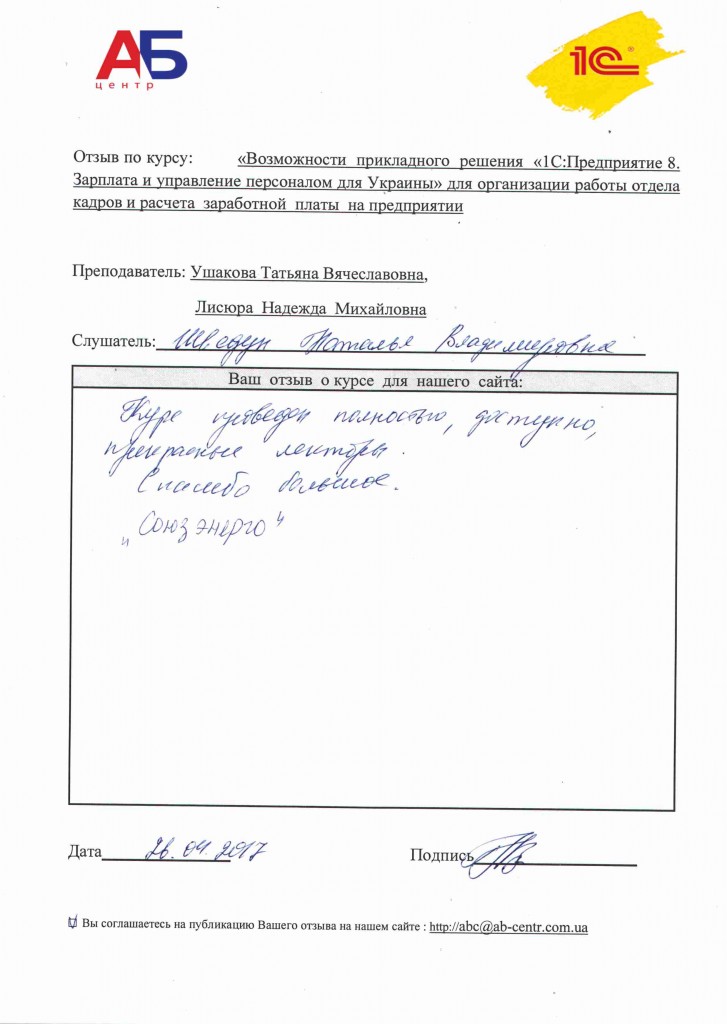 АБ
центр
1С
Отзыв по курсу: «Возможности прикладного решения «1С:Предприятие 8.
Зарплата и управление персоналом для Украины» для организации работы отдела
кадров и расчета заработной платы на предприятии
Преподаватель: Ушакова Татьяна Вячеславовна,
Лисюра Надежда Михайловна
Слушатель: Шведун Наталья Владимировна
Ваш отзыв о курсе для нашего сайта:
Курс проведен полностью, доступно,
прекрасные лекторы.
Спасибо большое.
"Союзэнерго"
Дата 26.04.2017
Подпись
Вы соглашаетесь на публикацию Вашего отзыва на нашем сайте : http://abc@ab-centr.com.ua